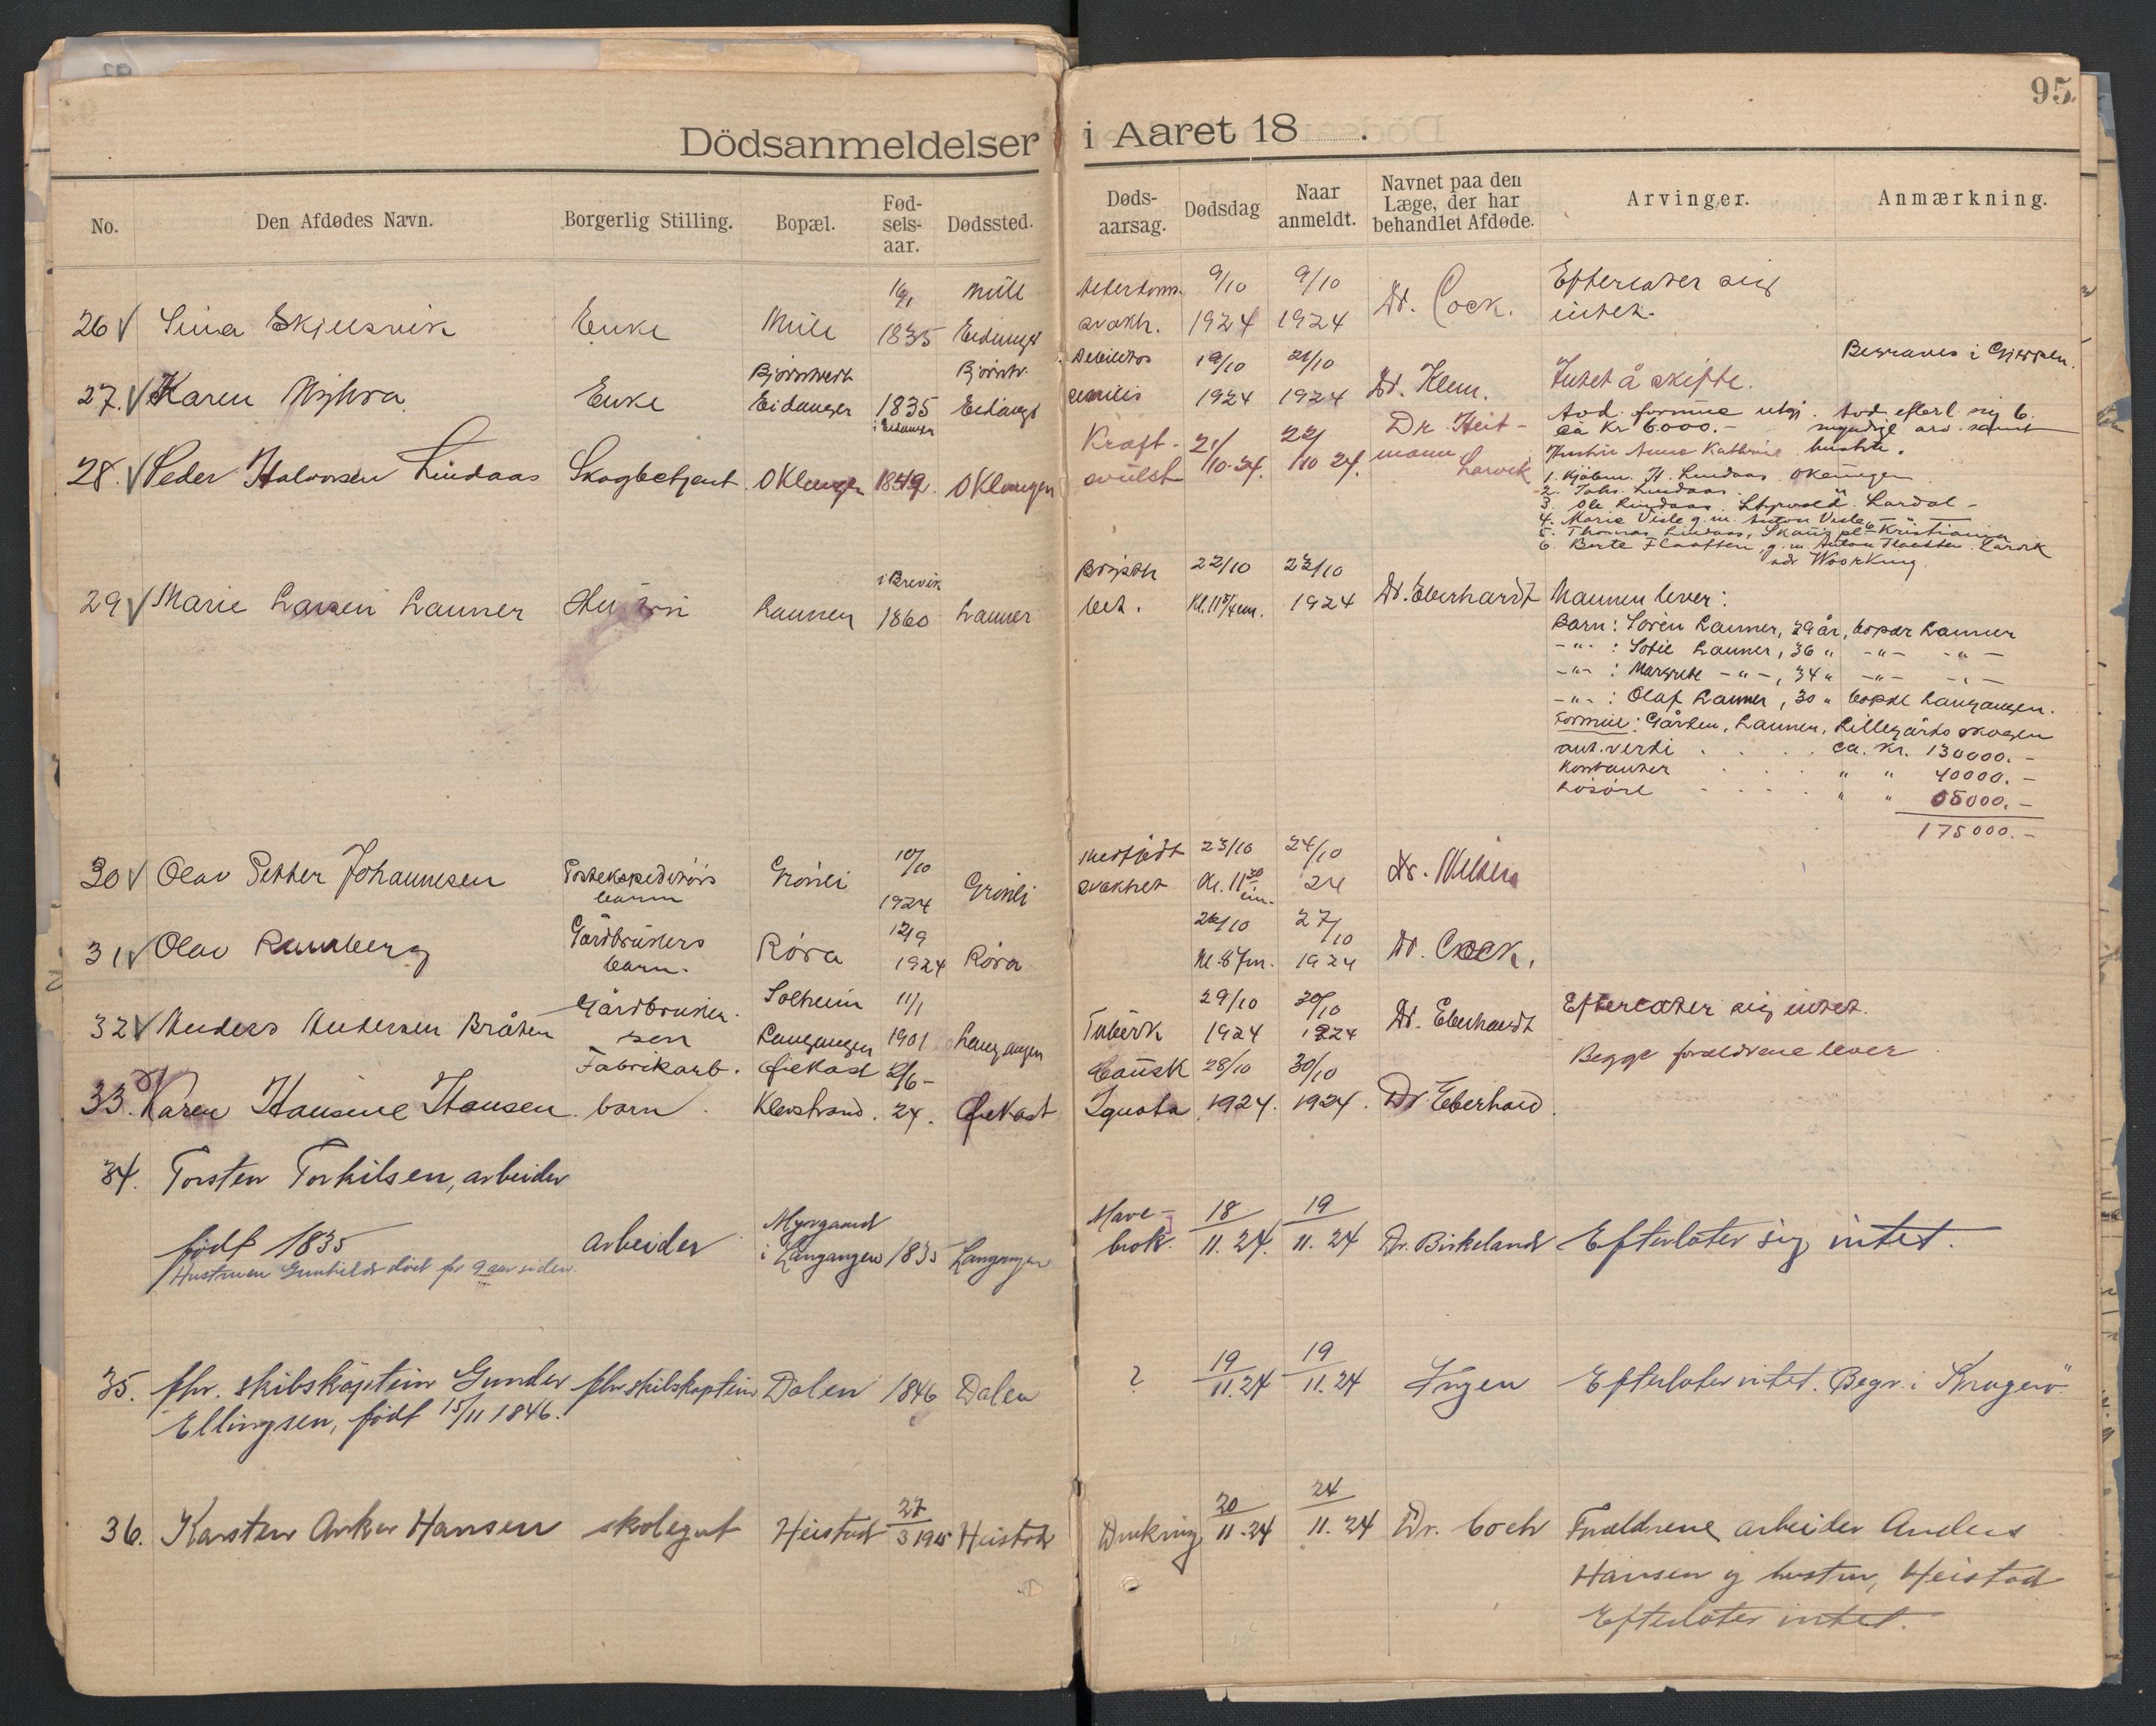 95.
Dödsanmeldelser i Aaret 18 .
No. Den Afdødes Navn. Borgerlig Stilling. Bopæl. Fød-sels-aar. Dødssted. Døds-aarsag. Dødsdag Naar anmeldt. Navnet paa den Læge, der har behandlet Afdøde. Arvinger. Anmærkning.
Müle 9/10 9/10 Efterlater sig
26 √ Enke Müle 1835 Eidanger 1924 1924 Dr. Cock. intet.
Bjørntvedt Bjørntv. 19/10 21/10 Begraves i Gjerpen.
27. √ Karen Enke Eidanger 1835 Eidang. senilis 1924 1924 Dr. Klem. Intet å skifte.
i Eidanger
Avd. formue utgj. Avd. efterl. sig 6
ca Kr 6000.- myndige arv. samt
Kraft- 21/10-24. 22/10 24. Dr. Heit-
28. √ Peder Halvorsen Lindaas Skogbetjent Oklungen 1849. Oklungen svülst mann Larvik Hustru Anna Kathrine hustru.
1. H. Lindaas. Oklungen
2. Johs. Lindaas. "
3. Ole Lindaas. Lardal -
4. Marie Visle g. m. Anton Visle
5. Thomas Lindaas, Kristiania
6. Berte Flaatten, g. m. Anton Flaatten. Larvik
i Brevik Brystk 22/10 23/10
29 √ Marie Larsen Lanner Hustru Lanner 1860 Lanner bet. Kl. 11 3/4 em. 1924 Dr. Eberhardt Mannen lever:
Barn: Soren Lanner, 39 år, bopæl Lanner
-"- : Sofie Lanner, 36 " -"- -"-
-"- : Margrete -"-, 34 " -"- -"-
-"- : Olaf Lanner, 30 " bopæl Langangen.
Formüe: Gården, Lanner, Lillegårdsskogen
ant. verdi . . . ca. kr. 130000.-
Kontanter . . . " " 40000.-
Løsøre . . . " " 05000.-
175000.-
10/10 Medfødt 23/10 24/10
30 √ Olav Petter Johannesen Postekspeditørs barn Grønli 1924 Grønli svakhet Kl. 11 30 em. 24 Dr.
12/9 26/10 27/10
31 √ Olav Ramberg Gårdbrükers barn. Røra 1924 Røra Kl. 8 fm. 1924 Dr. Cock.
Solheim 11/1 29/10 30/10
32 √ Anders Andersen Bråten Gårdbrüker. søn Langangen 1901 Langangen Tüberk 1924 1924 Dr. Eberhardt Efterlater sig intet.
Begge foreldrene lever
Fabrikarb. Ørekast 2/6- Caüsk 28/10 30/10
33. Karen Hansine Hansen. barn. Klevstrand. 24. Ørekast Ignota 1924. 1924. Dr. Eberhard.
34. Torsten Torkilsen, arbeider
født 1835 arbeider Myrgaard i Langangen 1835 Langangen Mave-brok. 18/11. 24. 19/11. 24 Dr. Birkeland Efterlater sig intet.
Hustruen Gunhild død for 9 aar siden.
35. fhv. skibskaptein Gunder fhv. skibskaptein Dalen 1846 Dalen ? 19/11. 24 19/11. 24 Ingen Efterlater intet. Begr. i Kragerø.
Ellingsen, født 15/11 1846.
36. Karsten Anker Hansen skolegut Heistad 27/3 1915 Heistad Drukning 20/11-24 24/11. 24 Dr. Coch Forældrene arbeider Anders
Hansen og hustru, Heistad
Efterlater intet.